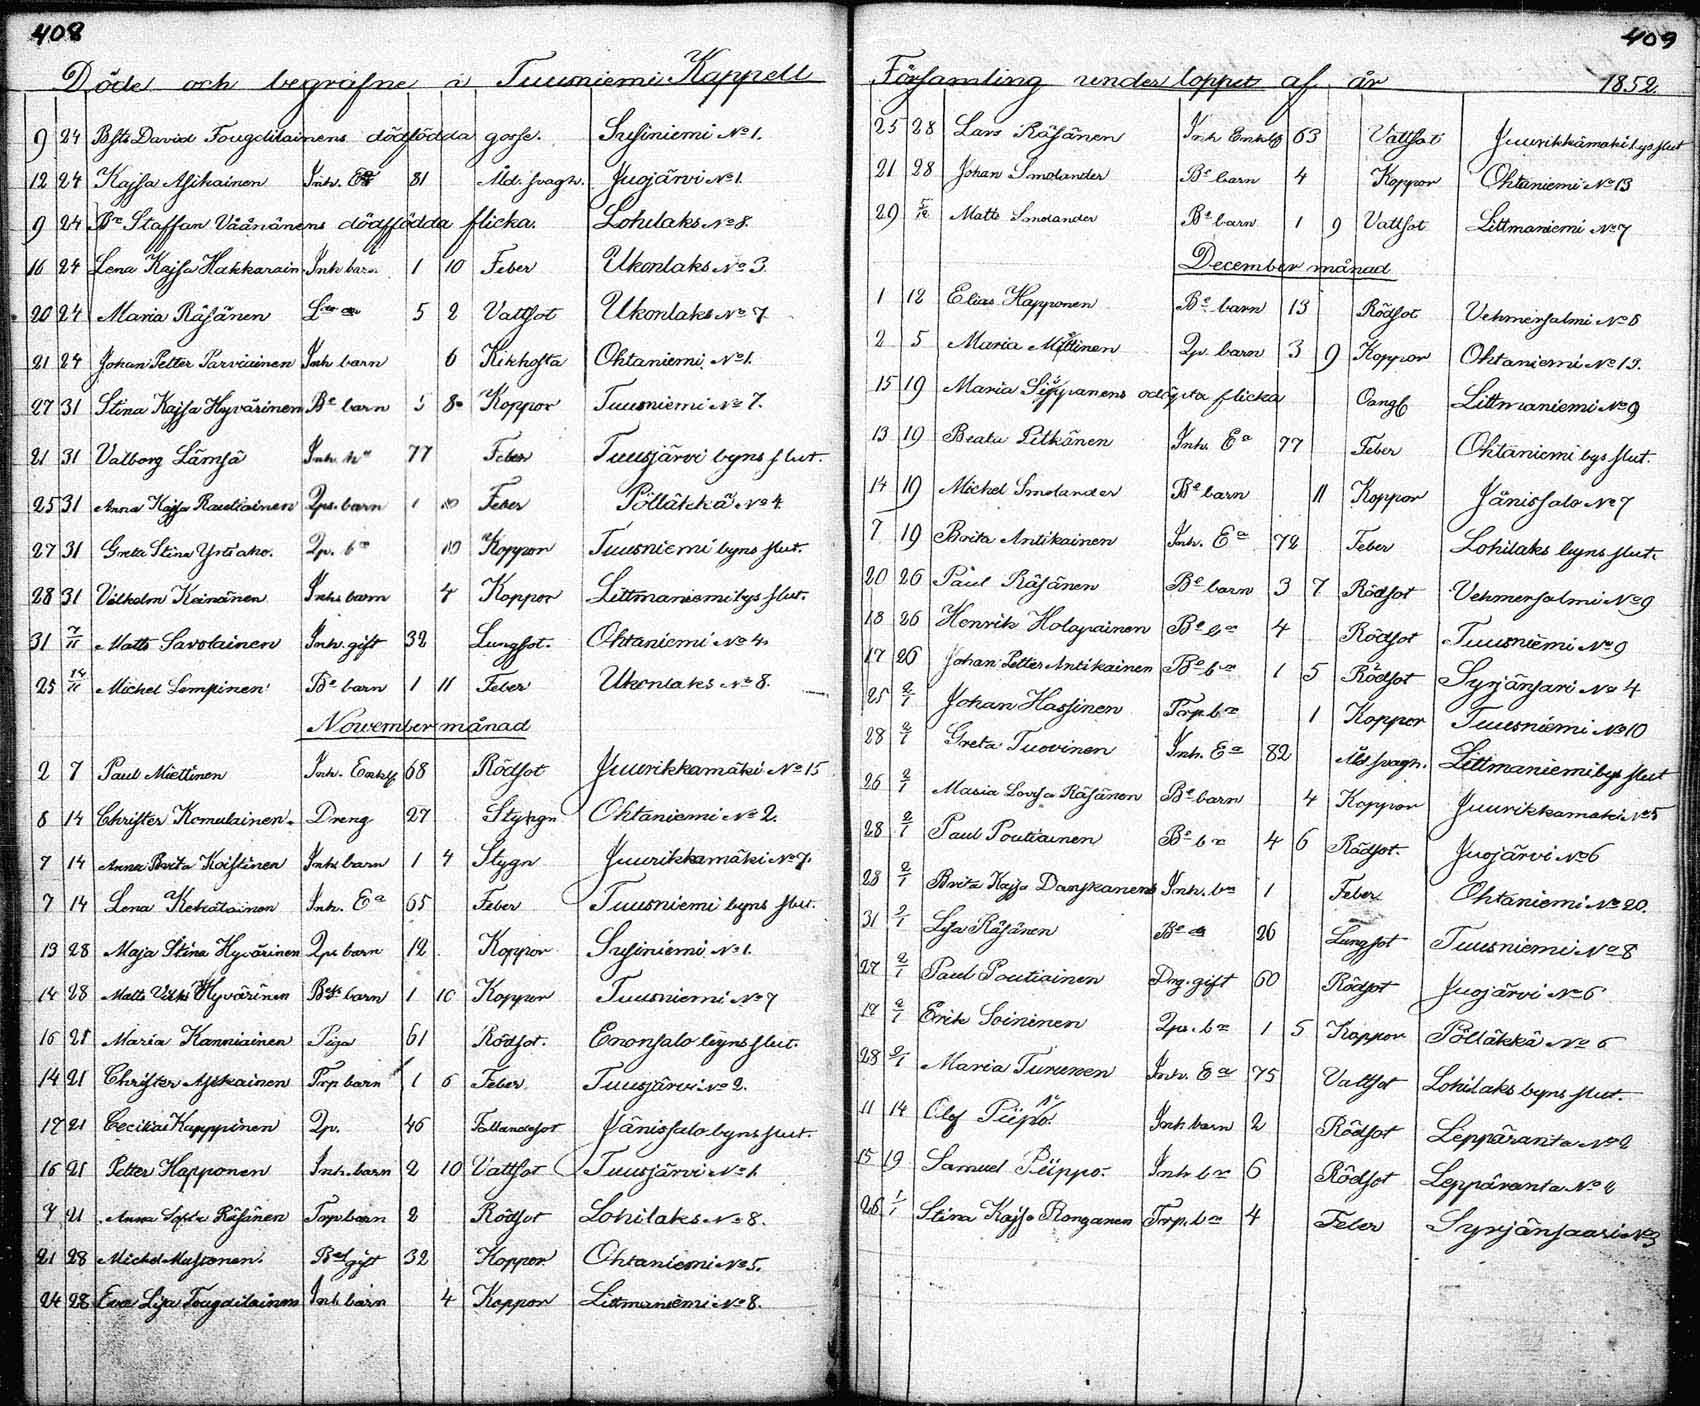 408
Döde och begrafne i Tuusniemi Kappell
9 24 Bfts David Tougdilainens dödfödda gosse. Susiniemi No 1.
12 24 Kajsa Asikainen Inh. Ea 81 Åld. svagh. Juojärvi No 1.
9 24 Bn Staffan Väänänens dödfödda flicka. Lohilaks No 8.
16 24 Lena Kajsa Hakkarain Inh barn 1 10 Feber Ukonlaks No 3.
20 24 Maria Räsänen 5 2 Vattsot Ukonlaks No 7
21 24 Johan Petter Parviainen Inh barn 6 Kikhosta Ohtaniemi No 1.
27 31 Stina Kajsa Hyvärinen Be barn 5 8 Koppor Tuusniemi No 7.
21 31 Valborg Lämsä Inh. 77 Feber Tuusjärvi byns slut.
25 31 Anna Kajsa Rautiainen Qps. barn 1 10 Feber Pölläkkä No 4.
27 31 Greta Stina Yrtiaho. Qp. bn 10 Koppor Tuusniemi byns slut.
28 31 Vilhelm Keinänen Inhs barn 4 Koppor Littmaniemi bys slut.
31 7/11 Matts Savolainen Inh. gift 32 Lungsot. Ohtaniemi No 4.
25 14/11 Michel Lempinen Be barn 1 11 Feber Ukonlaks No 8.
November månad
2 7 Paul Miettinen Inh. Enkl. 68 Rödsot Juurikkamäki No 15
8 14 Christer Komulainen. Dreng 27 Stygn Ohtaniemi No 2.
7 14 Anna Brita Koistinen Inh. barn 1 4 Stygn Juurikkamäki No 7.
7 14 Lena Kekäläinen Inh. Ea 65 Feber Tuusniemi byns slut.
13 28 Maja Stina Hyvärinen Qps barn 12 Koppor Susiniemi No 1.
14 28 Matts Vilh. Hyvärinen Bfts barn 1 10 Koppor Tuusniemi No 7
16 21 Maria Kanniainen Piga 61 Rödsot. Enonsalo byns slut.
14 21 Christer Asikainen Trp barn 1 6 Feber Tuusjärvi No 2.
17 21 Cecilia Kapppinen Qp. 46 Fallandesot Jänissalo byns slut.
16 21 Petter Happonen Inh. barn 2 10 Vattsot Tuusjärvi No 1.
7 21 Anna Sofia Räsänen Torp barn 2 Rödsot Lohilaks No 8.
21 28 Michel Mustonen. Be gift 32 Koppor Ohtaniemi No 5.
24 28 Eva Lisa Tougdilainen Inh. barn 4 Koppor Littmaniemi No 8.
409
Församling under loppet af år 1852.
25 28 Lars Räsänen Inh Enkl 63 Vattsot Juurikkamäki bys slut
21 28 Johan Smolander Be barn 4 Koppor Ohtaniemi No 13
29 5/12 Matts Smolander Be barn 1 9 Vattsot Littmaniemi No 7
December månad
1 12 Elias Happonen Be barn 13 Rödsot Vehmersalmi No 8
2 5 Maria Miettinen Qp. barn 3 9 Koppor Ohtaniemi No 13.
15 19 Maria odöpta flicka Oangf Littmaniemi No 9
13 19 Beata Pitkänen Inh. Ea 77 Feber Ohtaniemi bys slut.
14 19 Michel Smolander Be barn 11 Koppor Jänissalo No 7
7 19 Brita Antikainen Inh. Ea 72 Feber Lohilaks byns slut.
20 26 Paul Räsänen Be barn 3 7 Rödsot Vehmersalmi No 9
18 26 Henrik Holopainen Be bn 4 Rödsot Tuusniemi No 9
17 26 Johan Petter Antikainen Be bn 1 5 Rödsot Syrjänsari No 4
25 2/1 Johan Hassinen Torp. bn 1 Koppor Tuusniemi No 10
28 2/1 Greta Tuovinen Inh. Ea 82 Åld svagh. Littmaniemi bys slut
26 2/1 Maria Lovisa Räsänen Be barn 4 Koppor Juurikkamäki No 5
28 2/1 Paul Poutiainen Be bn 4 6 Rödsot. Juojärvi No 6
28 2/1 Brita Kajsa Danskanens Inh. bn 1 Feber Ohtaniemi No 20.
31 2/1 Lisa Räsänen Be 26 Lungsot Tuusniemi No 8
27 2/1 Paul Poutiainen Dng. gift 60 Rödsot Juojärvi No 6
17 2/1 Erik Soininen Qps. bn 1 5 Koppor Pölläkkä No 6
28 2/1 Maria Turunen Inh. Ea 75 Vattsot Lohilaks byns slut.
11 14 Olof Piipo. Inh barn 2 Rödsot Leppäranta No 2
15 19 Samuel Piippo. Inh bn 6 Rödsot Leppäranta No 2
26 1/1 Stina Kajsa Ronganen Torp. bn 4 Feber Syrjänsaari No 3